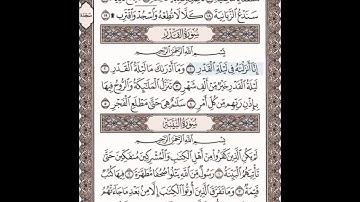 سَنَدْعُ الزَّبَانِيَةَ ۝١٨ كَلَّا لَا تُطِعْهُ وَاسْجُدْ وَاقْتَرِب ۩ ۝١٩
سُورَةُ الْقَدْرِ
بِسْمِ اللَّهِ الرَّحْمَٰنِ الرَّحِيمِ
إِنَّا أَنزَلْنَاهُ فِي لَيْلَةِ الْقَدْرِ ۝١ وَمَا أَدْرَاكَ مَا لَيْلَةُ الْقَدْرِ ۝٢
لَيْلَةُ الْقَدْرِ خَيْرٌ مِّنْ أَلْفِ شَهْرٍ ۝٣ تَنَزَّلُ الْمَلَائِكَةُ وَالرُّوحُ فِيهَا
بِإِذْنِ رَبِّهِم مِّن كُلِّ أَمْرٍ ۝٤ سَلَامٌ هِيَ حَتَّىٰ مَطْلَعِ الْفَجْرِ ۝٥
سُورَةُ الْبَيِّنَةِ
بِسْمِ اللَّهِ الرَّحْمَٰنِ الرَّحِيمِ
لَمْ يَكُنِ الَّذِينَ كَفَرُوا مِنْ أَهْلِ الْكِتَابِ وَالْمُشْرِكِينَ مُنفَكِّينَ حَتَّىٰ
تَأْتِيَهُمُ الْبَيِّنَةُ ۝١ رَسُولٌ مِّنَ اللَّهِ يَتْلُو صُحُفًا مُّطَهَّرَةً ۝٢ فِيهَا كُتُبٌ
قَيِّمَةٌ ۝٣ وَمَا تَفَرَّقَ الَّذِينَ أُوتُوا الْكِتَابَ إِلَّا مِن بَعْدِ مَا جَاءَتْهُمُ